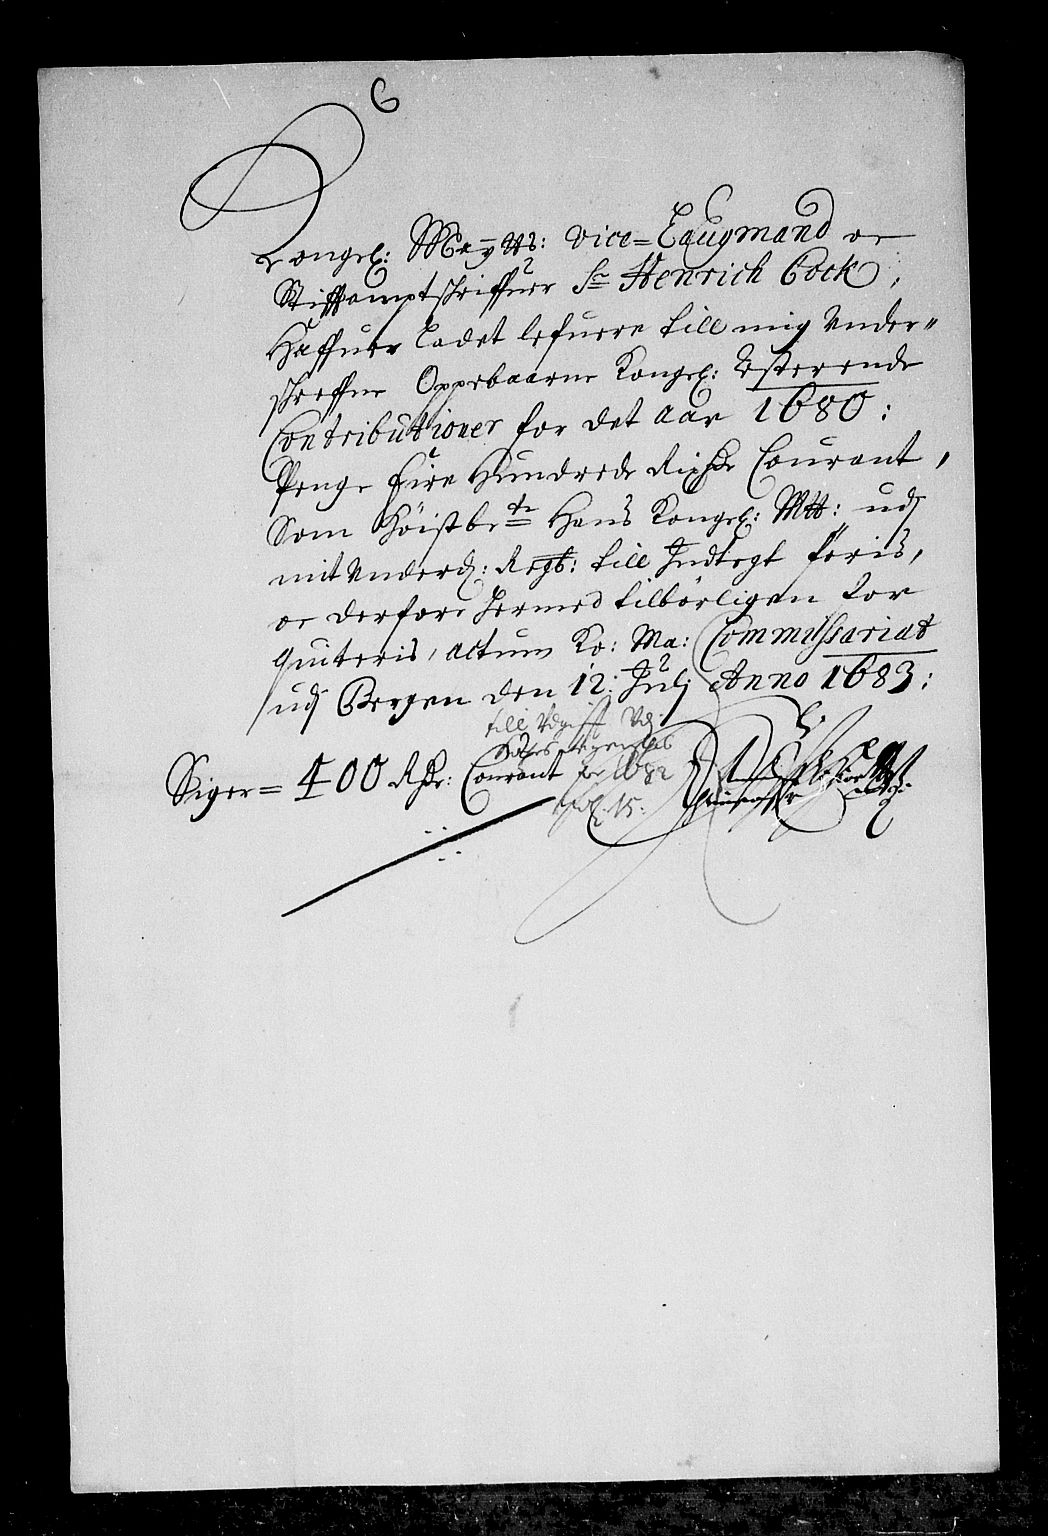 6
Kongel: Maytts: vice=Laugmand oc
Stifftamptschriffuer Sr Henrich Cock,
Haffuer Ladet lefuere till mig Under=
schreffne Oppebaarne Kongel: Resterende
Contributioner for det aar 1680:
Penge Fire Hundrede Rixdr Courant,
Som Höistbete Hans Kongel: Mtt: udj
mit Underd: Regsb: till Indtegt föris,
oc derfore hermed tilbörligen for
quiteris, actum Ko: Ma: Commissariat
udj Bergen den 12: Julj Anno 1683:
till Udgifft Udj
for 1682
fol. 15:
Siger= 400 Rdr: Courant